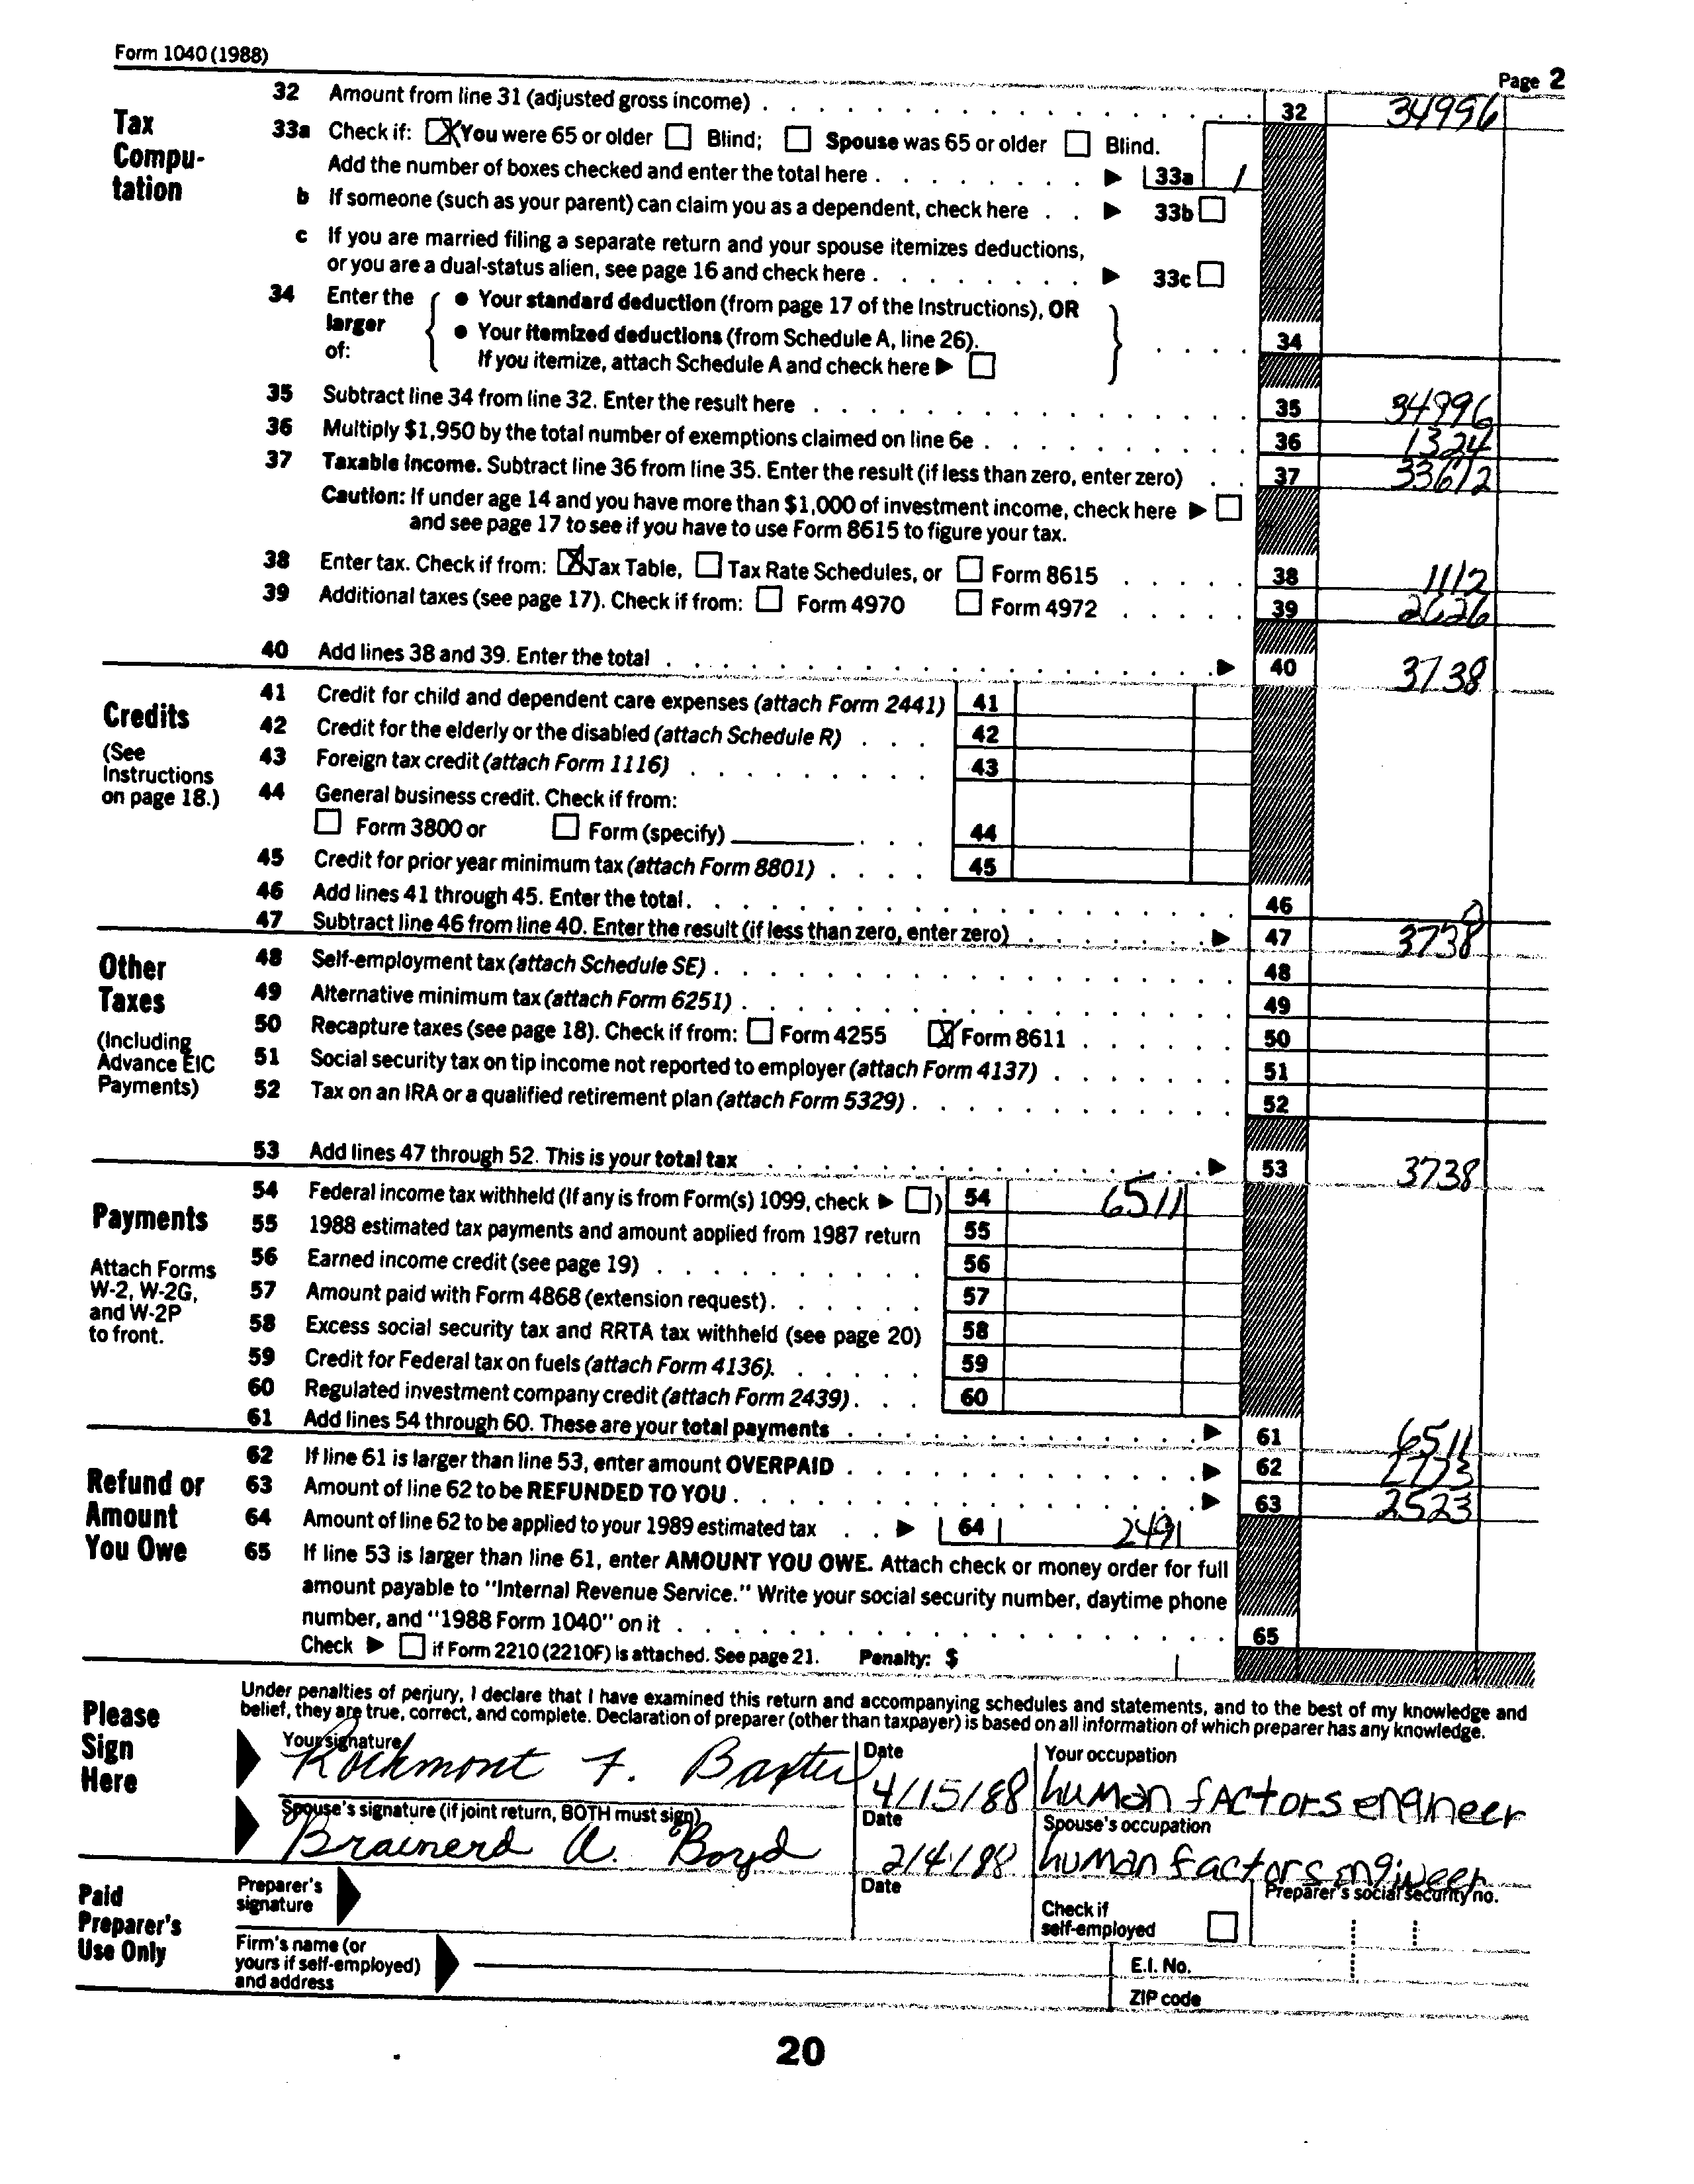 Form 1040 (1988)
Page 2
Tax Compu- tation
32 Amount from line 31 (adjusted gross income) 32 34996
33a Check if: You were 65 or older Blind; Spouse was 65 or older Blind.
Add the number of boxes checked and enter the total here 33a 1
b If someone (such as your parent) can claim you as a dependent, check here 33b
c If you are married filing a separate return and your spouse itemizes deductions,
or you are a dual-status alien, see page 16 and check here 33c
34 Enter the larger of:
• Your standard deduction (from page 17 of the Instructions), OR
• Your itemized deductions (from Schedule A, line 26).
If you itemize, attach Schedule A and check here 34
35 Subtract line 34 from line 32. Enter the result here 35 34996
36 Multiply $1,950 by the total number of exemptions claimed on line 6e 36 1324
37 Taxable income. Subtract line 36 from line 35. Enter the result (if less than zero, enter zero) 37 33672
Caution: If under age 14 and you have more than $1,000 of investment income, check here
and see page 17 to see if you have to use Form 8615 to figure your tax.
38 Enter tax. Check if from: Tax Table, Tax Rate Schedules, or Form 8615 38 1112
39 Additional taxes (see page 17). Check if from: Form 4970 Form 4972 39 2626
40 Add lines 38 and 39. Enter the total 40 3738
Credits
(See Instructions on page 18.)
41 Credit for child and dependent care expenses (attach Form 2441) 41
42 Credit for the elderly or the disabled (attach Schedule R) 42
43 Foreign tax credit (attach Form 1116) 43
44 General business credit. Check if from:
Form 3800 or Form (specify) 44
45 Credit for prior year minimum tax (attach Form 8801) 45
46 Add lines 41 through 45. Enter the total. 46 0
47 Subtract line 46 from line 40. Enter the result (if less than zero, enter zero) 47 3738
Other Taxes
(Including Advance EIC Payments)
48 Self-employment tax (attach Schedule SE) 48
49 Alternative minimum tax (attach Form 6251) 49
50 Recapture taxes (see page 18). Check if from: Form 4255 Form 8611 50
51 Social security tax on tip income not reported to employer (attach Form 4137) 51
52 Tax on an IRA or a qualified retirement plan (attach Form 5329) 52
53 Add lines 47 through 52. This is your total tax 53 3738
Payments
Attach Forms W-2, W-2G, and W-2P to front.
54 Federal income tax withheld (If any is from Form(s) 1099, check ) 54 6511
55 1988 estimated tax payments and amount applied from 1987 return 55
56 Earned income credit (see page 19) 56
57 Amount paid with Form 4868 (extension request) 57
58 Excess social security tax and RRTA tax withheld (see page 20) 58
59 Credit for Federal tax on fuels (attach Form 4136) 59
60 Regulated investment company credit (attach Form 2439) 60
61 Add lines 54 through 60. These are your total payments 61 6511
Refund or Amount You Owe
62 If line 61 is larger than line 53, enter amount OVERPAID 62
63 Amount of line 62 to be REFUNDED TO YOU 63 2523
64 Amount of line 62 to be applied to your 1989 estimated tax 64 2491
65 If line 53 is larger than line 61, enter AMOUNT YOU OWE. Attach check or money order for full
amount payable to "Internal Revenue Service." Write your social security number, daytime phone
number, and "1988 Form 1040" on it 65
Check if Form 2210 (2210F) is attached. See page 21. Penalty: $
Please Sign Here
Under penalties of perjury, I declare that I have examined this return and accompanying schedules and statements, and to the best of my knowledge and
belief, they are true, correct, and complete. Declaration of preparer (other than taxpayer) is based on all information of which preparer has any knowledge.
Your signature Date Your occupation
Rockmont F. Baxter 4/15/88 human factors engineer
Spouse's signature (if joint return, BOTH must sign) Date Spouse's occupation
Brainerd A. Boyd 2/4/88 human factors engineer
Paid Preparer's Use Only
Preparer's signature Date Check if self-employed Preparer's social security no.
Firm's name (or yours if self-employed) and address
E.I. No.
ZIP code
20